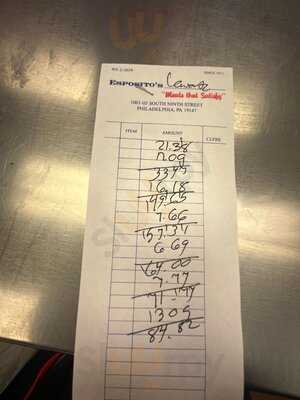 SINCE 1911
ESPOSITO'S
"Meats that Satisfy"
1001-07 SOUTH NINTH STREET
PHILADELPHIA, PA 19147
ITEM AMOUNT CLERK
21.38
12.09
33.47
16.18
149.65
7.66
157.31
6.69
164.00
7.77
171.77
13.05
84.82